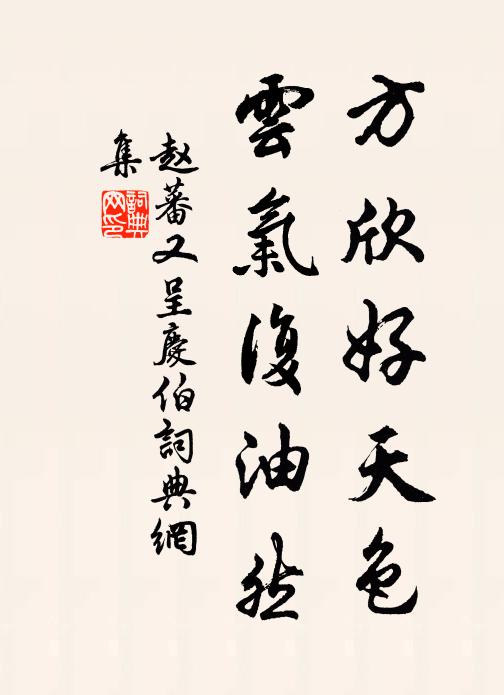 方欣好天色
雲氣復油然
赵蕃又呈慶伯詞典網
集
詞典
网印